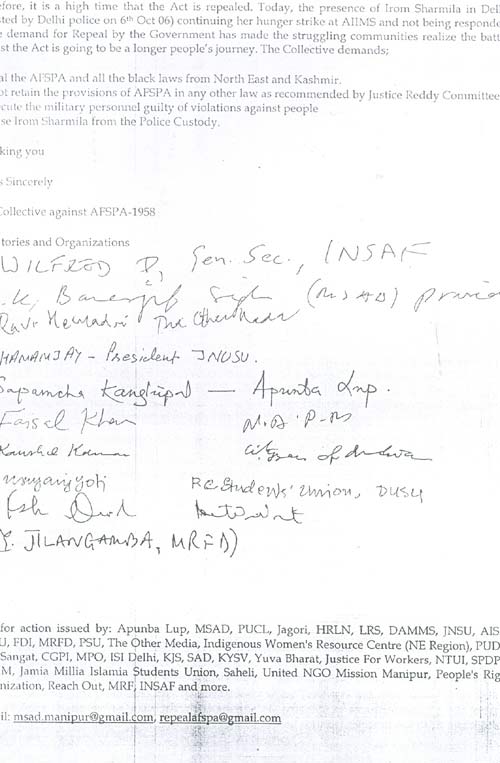 efore, it is a high time that the Act is repealed. Today, the presence of Irom Sharmila in Del
sted by Delhi police on 6th Oct 06) continuing her hunger strike at AIIMS and not being responde
e demand for Repeal by the Government has made the struggling communities realize the batt
st the Act is going to be a longer people's journey. The Collective demands;
al the AFSPA and all the black laws from North East and Kashmir.
ot retain the provisions of AFSPA in any other law as recommended by Justice Reddy Committee
ecute the military personnel guilty of violations against people
se Irom Sharmila from the Police Custody.
king you
s Sincerely
Collective against AFSPA-1958
tories and Organizations
WILFRED D, Gen. Sec., INSAF
K. (MSAD)
Ravi Hemadri The Other Media
HANANJAY - President JNUSU.
Sapamcha Kangleipal — Apunba Lup.
Faisal Khan
Kaushal Kumar
RC Students' Union, DUSU
JILANGAMBA, MRFD)
for action issued by: Apunba Lup, MSAD, PUCL, Jagori, HRLN, LRS, DAMMS, JNSU, AIS
U, FDI, MRFD, PSU, The Other Media, Indigenous Women's Resource Centre (NE Region), PUD
Sangat, CGPI, MPO, ISI Delhi, KJS, SAD, KYSV, Yuva Bharat, Justice For Workers, NTUI, SPDP
M, Jamia Millia Islamia Students Union, Saheli, United NGO Mission Manipur, People's Rig
nization, Reach Out, MRF, INSAF and more.
il: msad.manipur@gmail.com, repealafspa@gmail.com